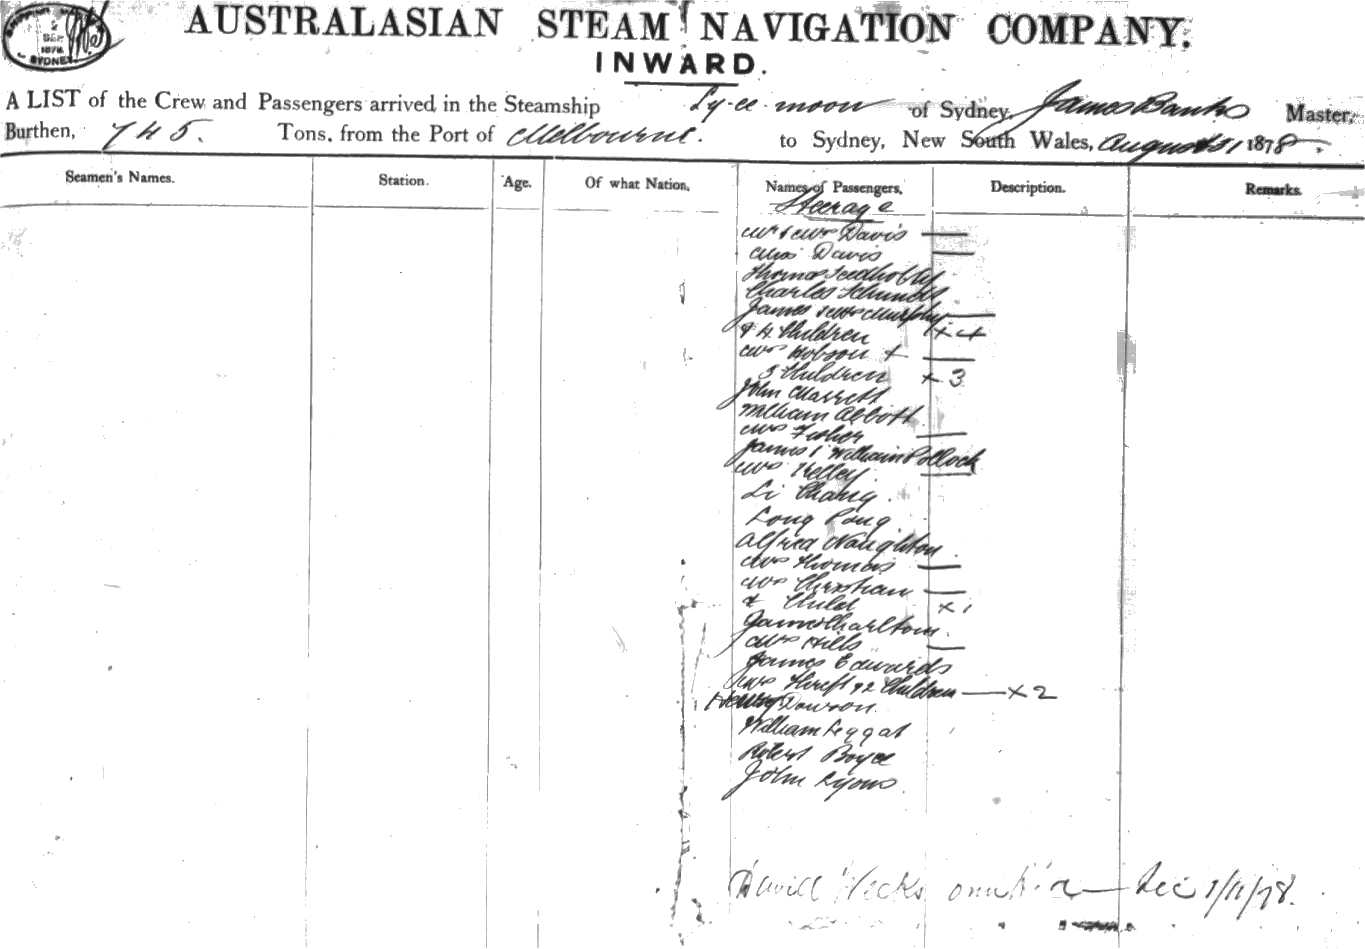 SEP
1878
SYDNEY
AUSTRALASIAN STEAM NAVIGATION COMPANY.
INWARD.
A LIST of the Crew and Passengers arrived in the Steamship Ly-ee-moon of Sydney, James Banks Master,
Burthen, 745. Tons, from the Port of Melbourne. to Sydney, New South Wales, August 31 1878.
Seamen's Names. Station. Age. Of what Nation. Names of Passengers. Description. Remarks.
Steerage
Mr & Mrs Davis —
Miss Davis —
Thomas
Charles Schmidt
James & Mrs Murphy —
& 4 Children x 4
Mrs Hobson + —
3 Children x 3
John Marrett
William Abbott
Mrs Fisher —
James & William Pollock
Mrs Kelley —
Li Chang.
Long Pong.
Alfred Naughton.
Mrs Thomas —
Mrs Christian —
& Child x 1
James Charlton.
Mrs Hills —
James Edwards
Mrs Thrift & 2 Children — x 2
Henry Dawson.
William Leggat
Robert Boyd
John Lyons.
David Hecks — 1/11/78.